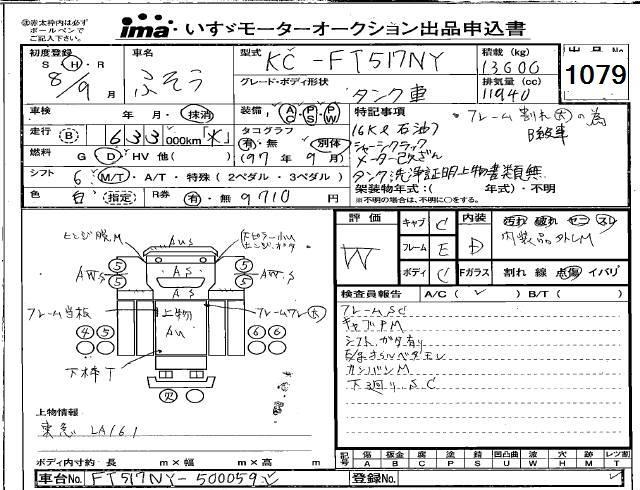 ※赤太枠内は必ず
ボールペンで
ご記入下さい。
ima いすゞモーターオークション出品申込書
初度登録 S H・R 8/9月
車名 ふそう
型式 KC-FT517NY
積載 (kg) 13600
出品No 1079
グレード・ボディ形状 タンク車
排気量 (cc) 11940
車検 年 月・抹消
装備 AC PS PW
特記事項
・フレーム割れ大の為
B級車
走行 B 633,000km「火」
タコグラフ 有・無 別体 (97年 9月)
16KL 石油7
シャーシブラック
メーター改ざん
燃料 G D HV 他( )
タンク洗浄証明上物書類無
シフト 6 M/T・A/T・特殊(2ペダル・3ペダル)
架装物年式:( 年式)・不明
※不明の場合は、不明に○をする。
色 白 指定 R券 有・無 9710円
評価 W
キャブ C
フレーム E
ボディ C
内装 D
汚れ 破れ コゲ スレ
内装品外しM
Fガラス 割れ 線 点傷 イバリ
検査員報告 A/C( ✓ ) B/T( )
フレームSC
キャブPM
シフトガタ有り
カンバンM
下廻りSC
ヒンジ腐M
AUS
AS
AWS
AWS
5
5
5
5
フレーム当板
上物
AU
フレームワレ大
4 5
6 6
下枠T
上物情報
東急 LA161
ボディ内寸約 長 m×幅 m×高 m
記号 傷A 板金B 腐C 塗P 錆S 凹凸曲U 波W 穴H 跡M レツ割T
車台No. FT517NY-500059
登録No.